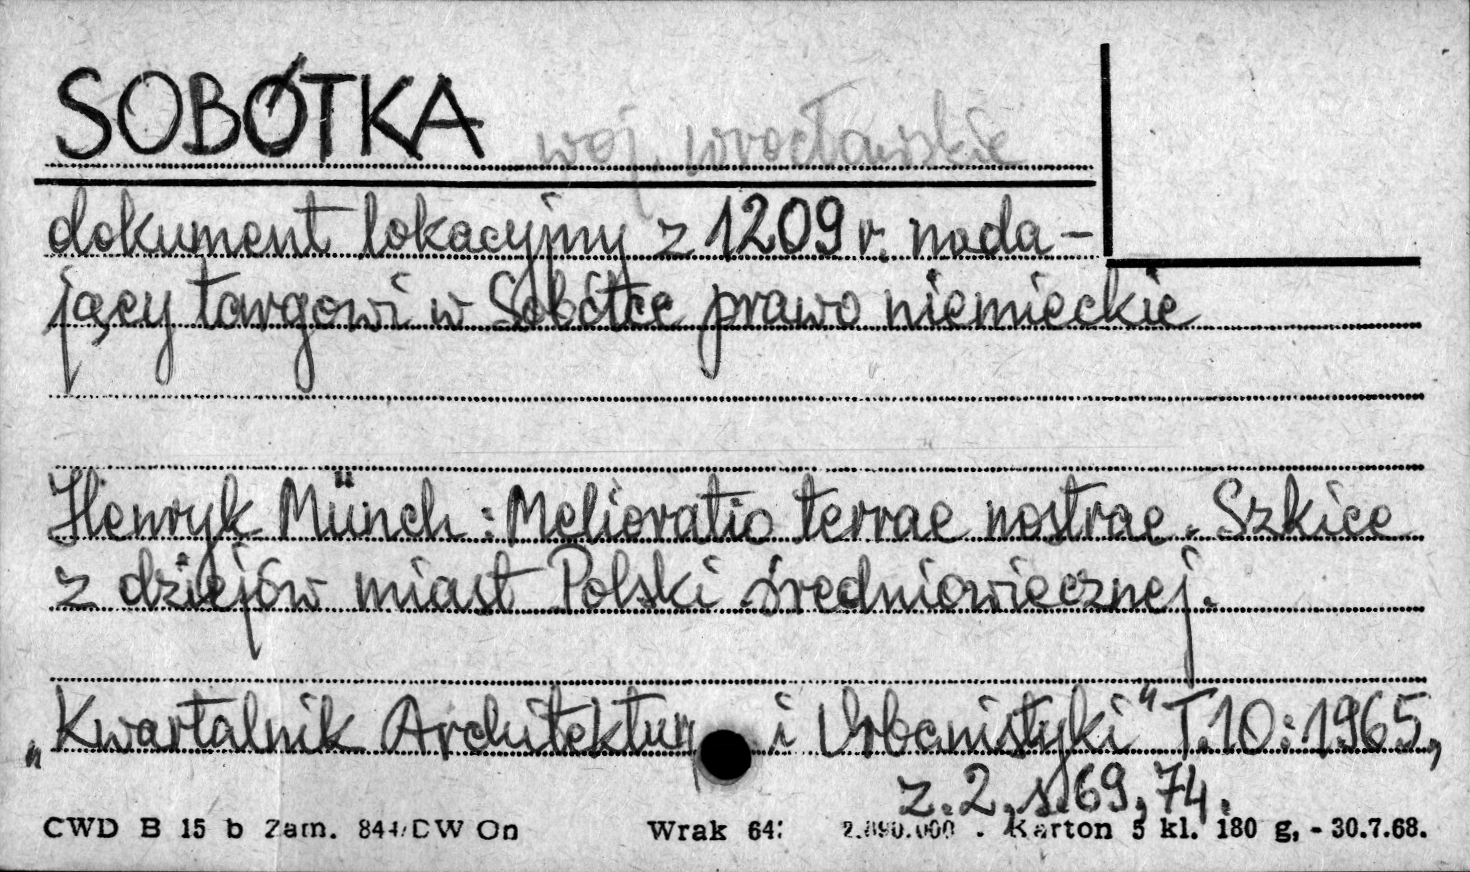 SOBÓTKA woj. wrocławskie
dokument lokacyjny z 1209 r. nada-
jący targowi w Sobótce prawo niemieckie
Henryk Münch: Melioratio terrae nostrae. Szkice
z dziejów miast Polski średniowiecznej.
„Kwartalnik Architektury i Urbanistyki" T.10:1965,
z. 2, s. 69, 74.
CWD B 15 b Zam. DW On Wrak Karton 5 kl. 180 g, - 30.7.68.